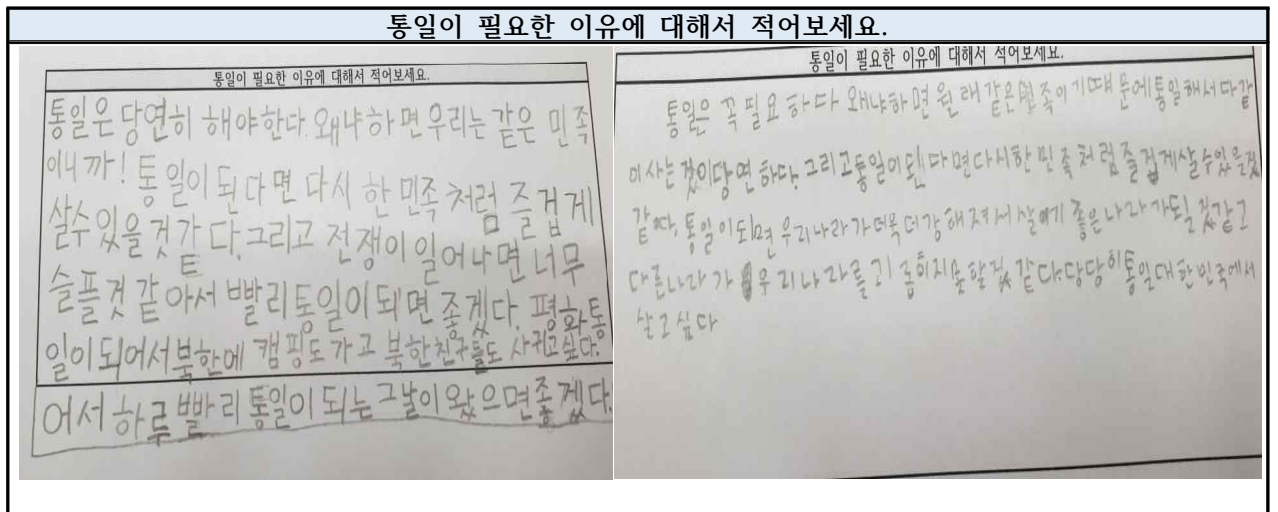 통일이 필요한 이유에 대해서 적어보세요.
통일이 필요한 이유에 대해서 적어보세요.
통일은 당연히 해야한다. 왜냐하면 우리는 같은 민족
이니까! 통일이 된다면 다시 한 민족 처럼 즐겁게
살수 있을 것 같다. 그리고 전쟁이 일어나면 너무
슬플것 같아서 빨리 통일이 되면 좋겠다. 평화통
일이 되어서 북한에 캠핑도 가고 북한친구들도 사귀고 싶다.
어서 하루 빨리 통일이 되는 그날이 왔으면 좋겠다.
통일이 필요한 이유에 대해서 적어보세요.
통일은 꼭 필요하다 왜냐하면 원래 같은 민족이기 때문에 통일해서 다같
이 사는 것이 당연하다. 그리고 통일이 된다면 다시 한 민족처럼 즐겁게 살수있을것
같따. 통일이 되면 우리나라가 더욱 더 강해져서 살기 좋은 나라가 될 것 같고
다른나라가 우리나라를 괴롭히지 못할것 같다. 당당히 통일 대한민국에서
살고 싶다